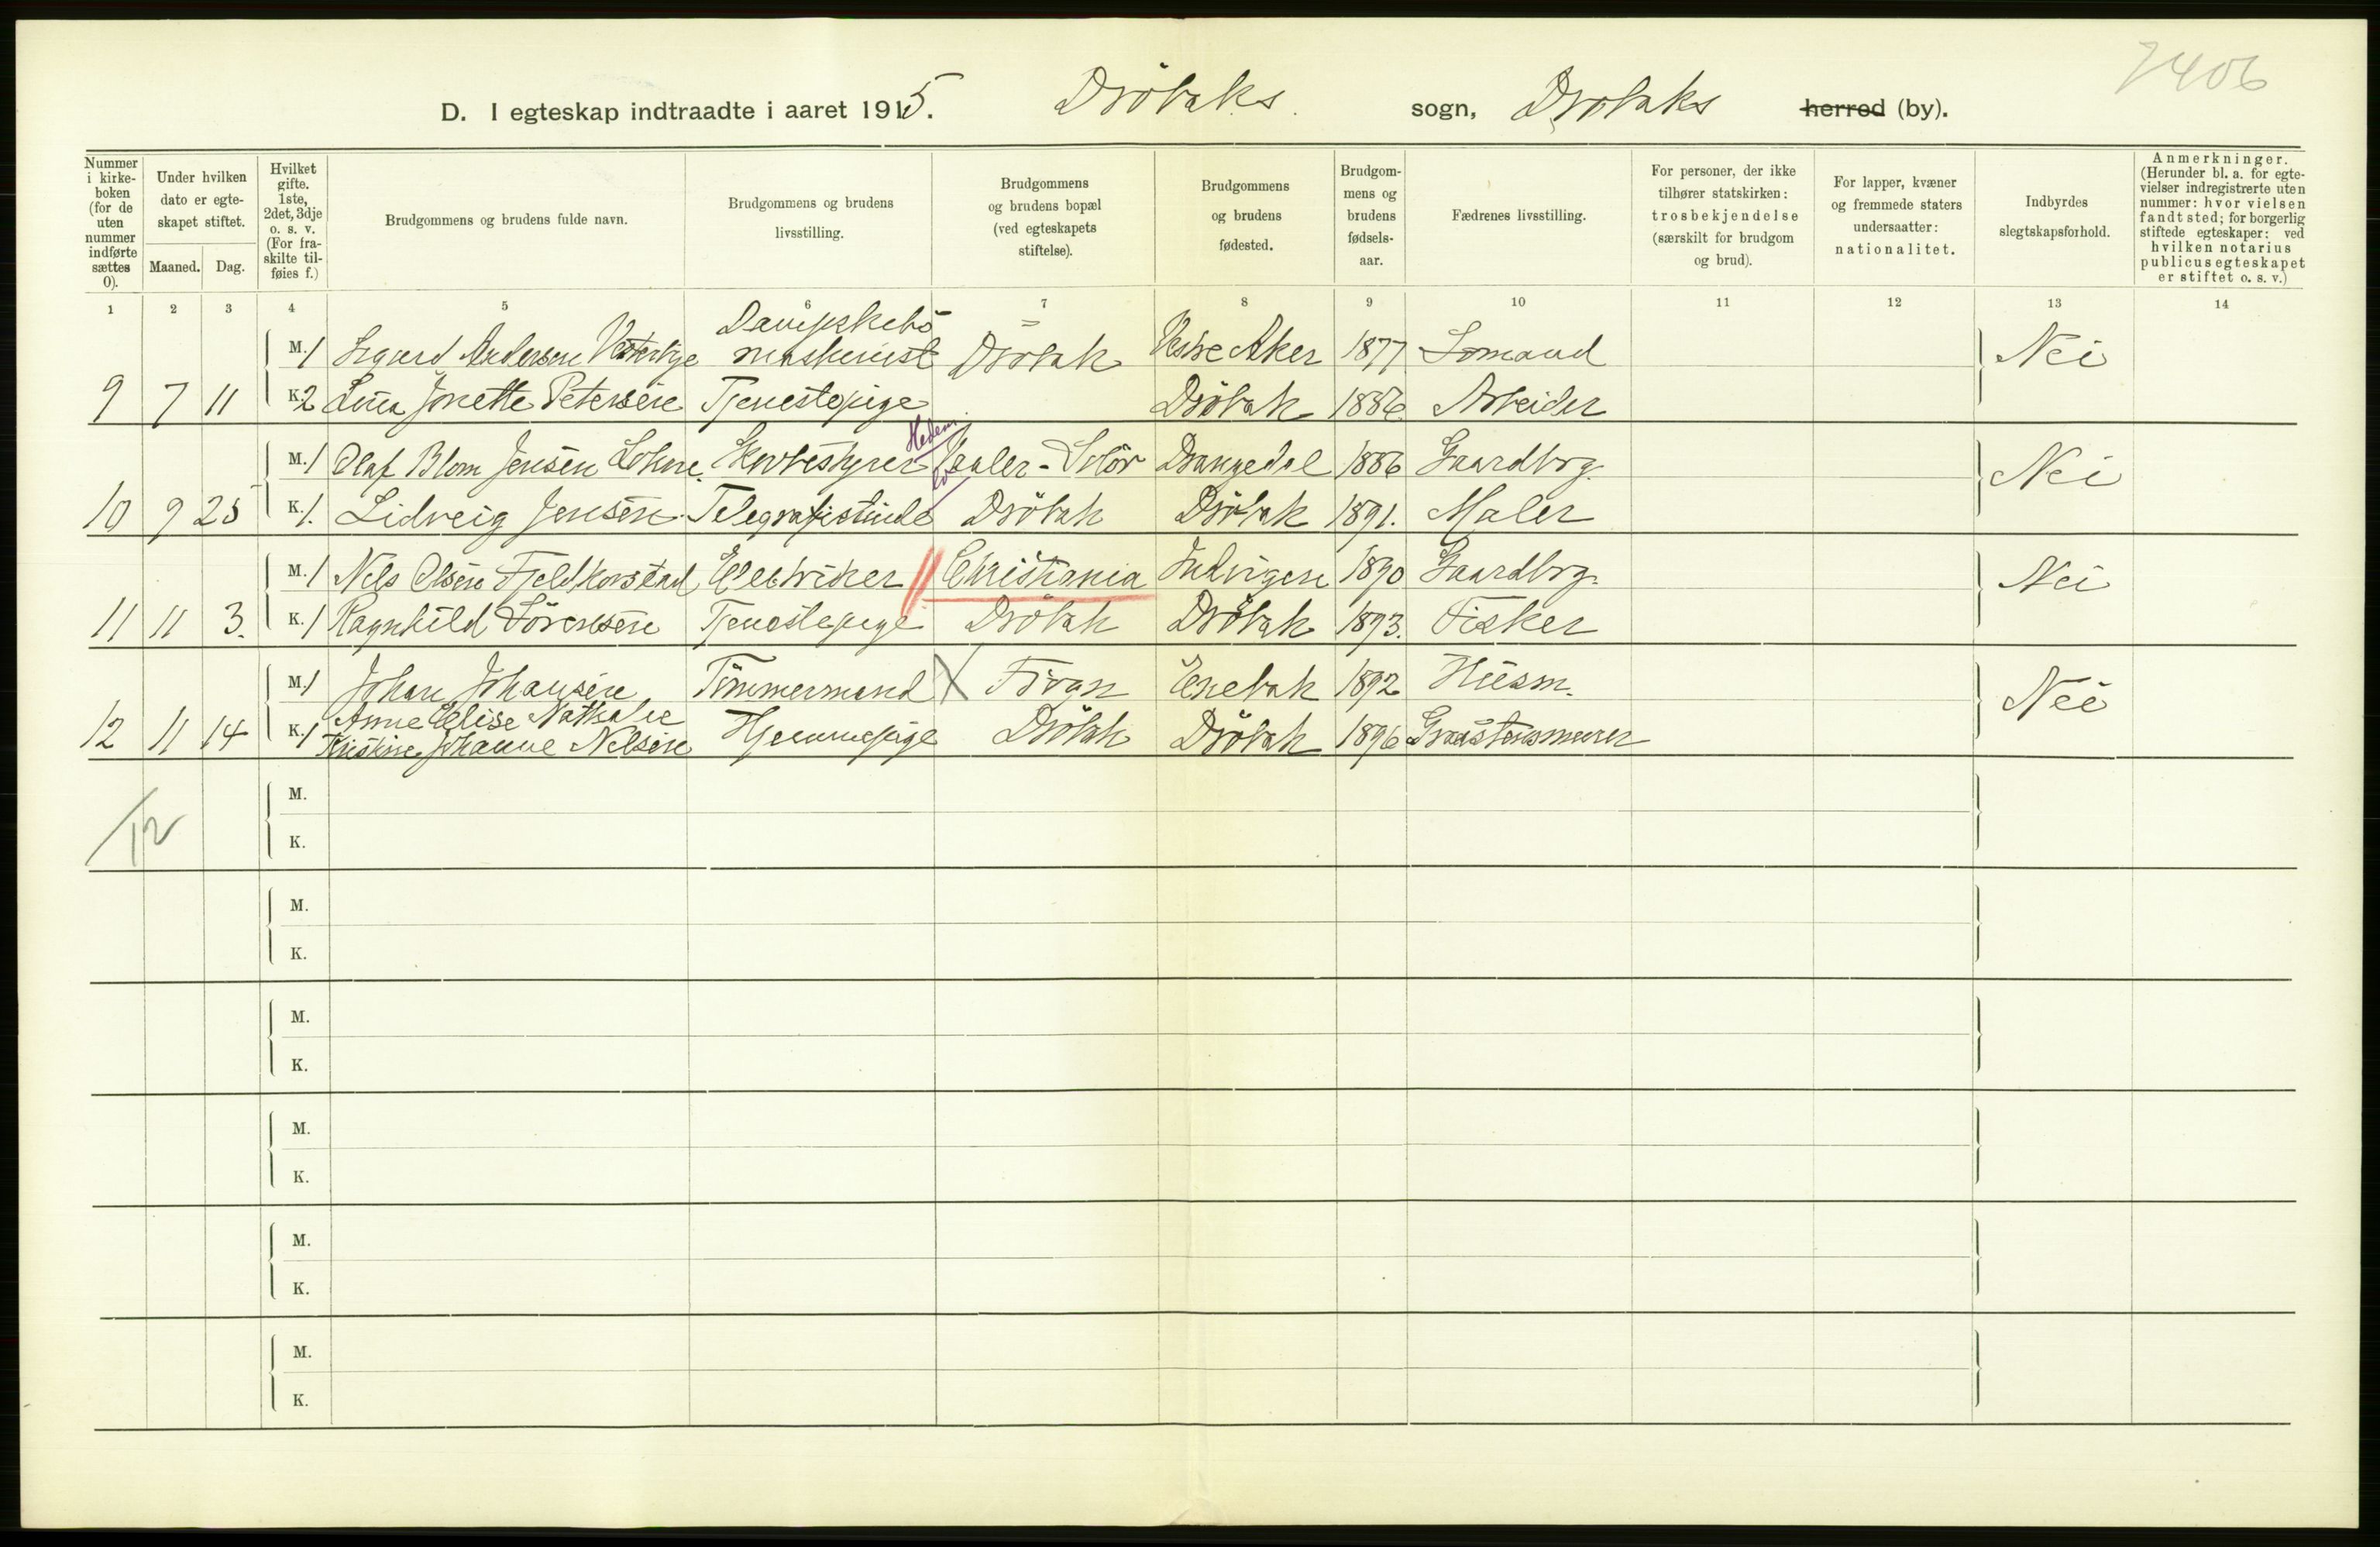 7406
D. I egteskap indtraadte i aaret 1915. Dröbaks sogn, Dröbaks herred (by).
Nummer i kirkeboken (for de uten nummer indførte sættes 0).
Under hvilken dato er egteskapet stiftet.
Maaned. Dag.
Hvilket gifte. 1ste, 2det, 3dje o. s. v. (For fraskilte tilføies f.)
Brudgommens og brudens fulde navn.
Brudgommens og brudens livsstilling.
Brudgommens og brudens bopæl (ved egteskapets stiftelse).
Brudgommens og brudens fødested.
Brudgommens og brudens fødselsaar.
Fædrenes livsstilling.
For personer, der ikke tilhører statskirken: trosbekjendelse (særskilt for brudgom og brud).
For lapper, kvæner og fremmede staters undersaatter: nationalitet.
Indbyrdes slegtskapsforhold.
Anmerkninger. (Herunder bl. a. for egtevielser indregistrerte uten nummer: hvor vielsen fandt sted; for borgerlig stiftede egteskaper: ved hvilken notarius publicus egteskapet er stiftet o. s. v.)
1 2 3 4 5 6 7 8 9 10 11 12 13 14
M. 1 Sigurd Andersen Dampskibsmaskinist Dröbak Vestre Aker 1877 Sömand Nei
9 7 11 K. 2 Lina Jonette Petersen Tjenestepige Dröbak 1886 Arbeider
Hedem.
M. 1 Olaf Blom Jensen Lohne. Skovbestyrer Vaaler - Solör Drangedal 1886 Gaardbrg. Nei
10 9 25 K. 1. Lidveig Jensen. Telegrafistinde Dröbak Dröbak 1891. Maler
M. 1 Nils Olsen Fjeldkorstad Elektriker Christiania Indvigen 1890 Gaardbrg. Nei
11 11 3. K. 1 Ragnhild Sörensen Tjenestepige Dröbak Dröbak 1893. Fisker
M. 1 Johan Johansen Tömmermand X Frogn Enebak 1892 Husm. Nei
12 11 14 K. 1 Anne Elise Nathalie Kristine Johanne Nelsen Hjemmepige Dröbak Dröbak 1896
12
M.
K.
M.
K.
M.
K.
M.
K.
M.
K.
M.
K.